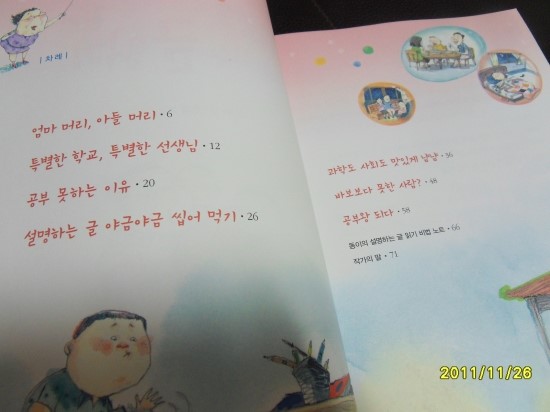 | 차례 |
엄마 머리, 아들 머리 • 6
특별한 학교, 특별한 선생님 • 12
공부 못하는 이유 • 20
설명하는 글 야금야금 씹어 먹기 • 26
과학도 사회도 맛있게 냠냠 • 36
바보보다 못한 사람? • 48
공부왕 되다 • 58
동이의 설명하는 글 읽기 비법 노트 • 66
작가의 말 • 71
2011/11/26